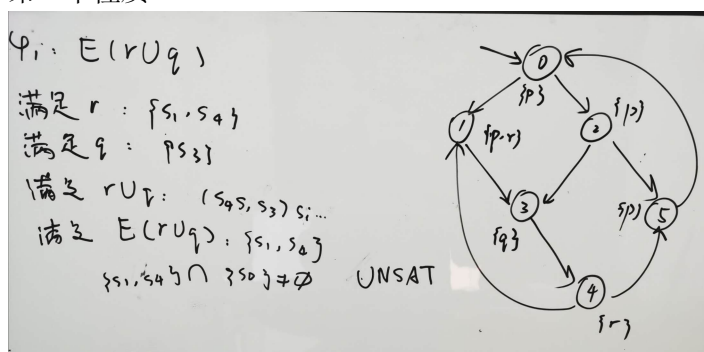 φ₁: E(r∪q)
满足 r : {s₁, s₄}
满足 q : {s₃}
满足 r∪q: (s₄s₁s₃) sᵢ...
满足 E(r∪q): {s₁, s₄}
{s₁, s₄} ∩ {s₀} ≠ ∅ UNSAT
0
{p}
1
{p,r}
2
{p}
3
{q}
5
{p}
4
{r}